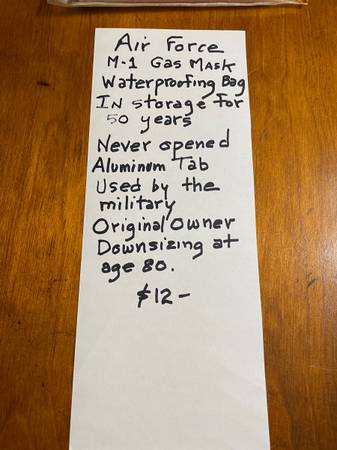 Air Force
M-1 Gas Mask
Waterproofing Bag
IN storage for
50 years
Never opened
Aluminum Tab
Used by the
military
Original Owner
Downsizing at
age 80.
$12-